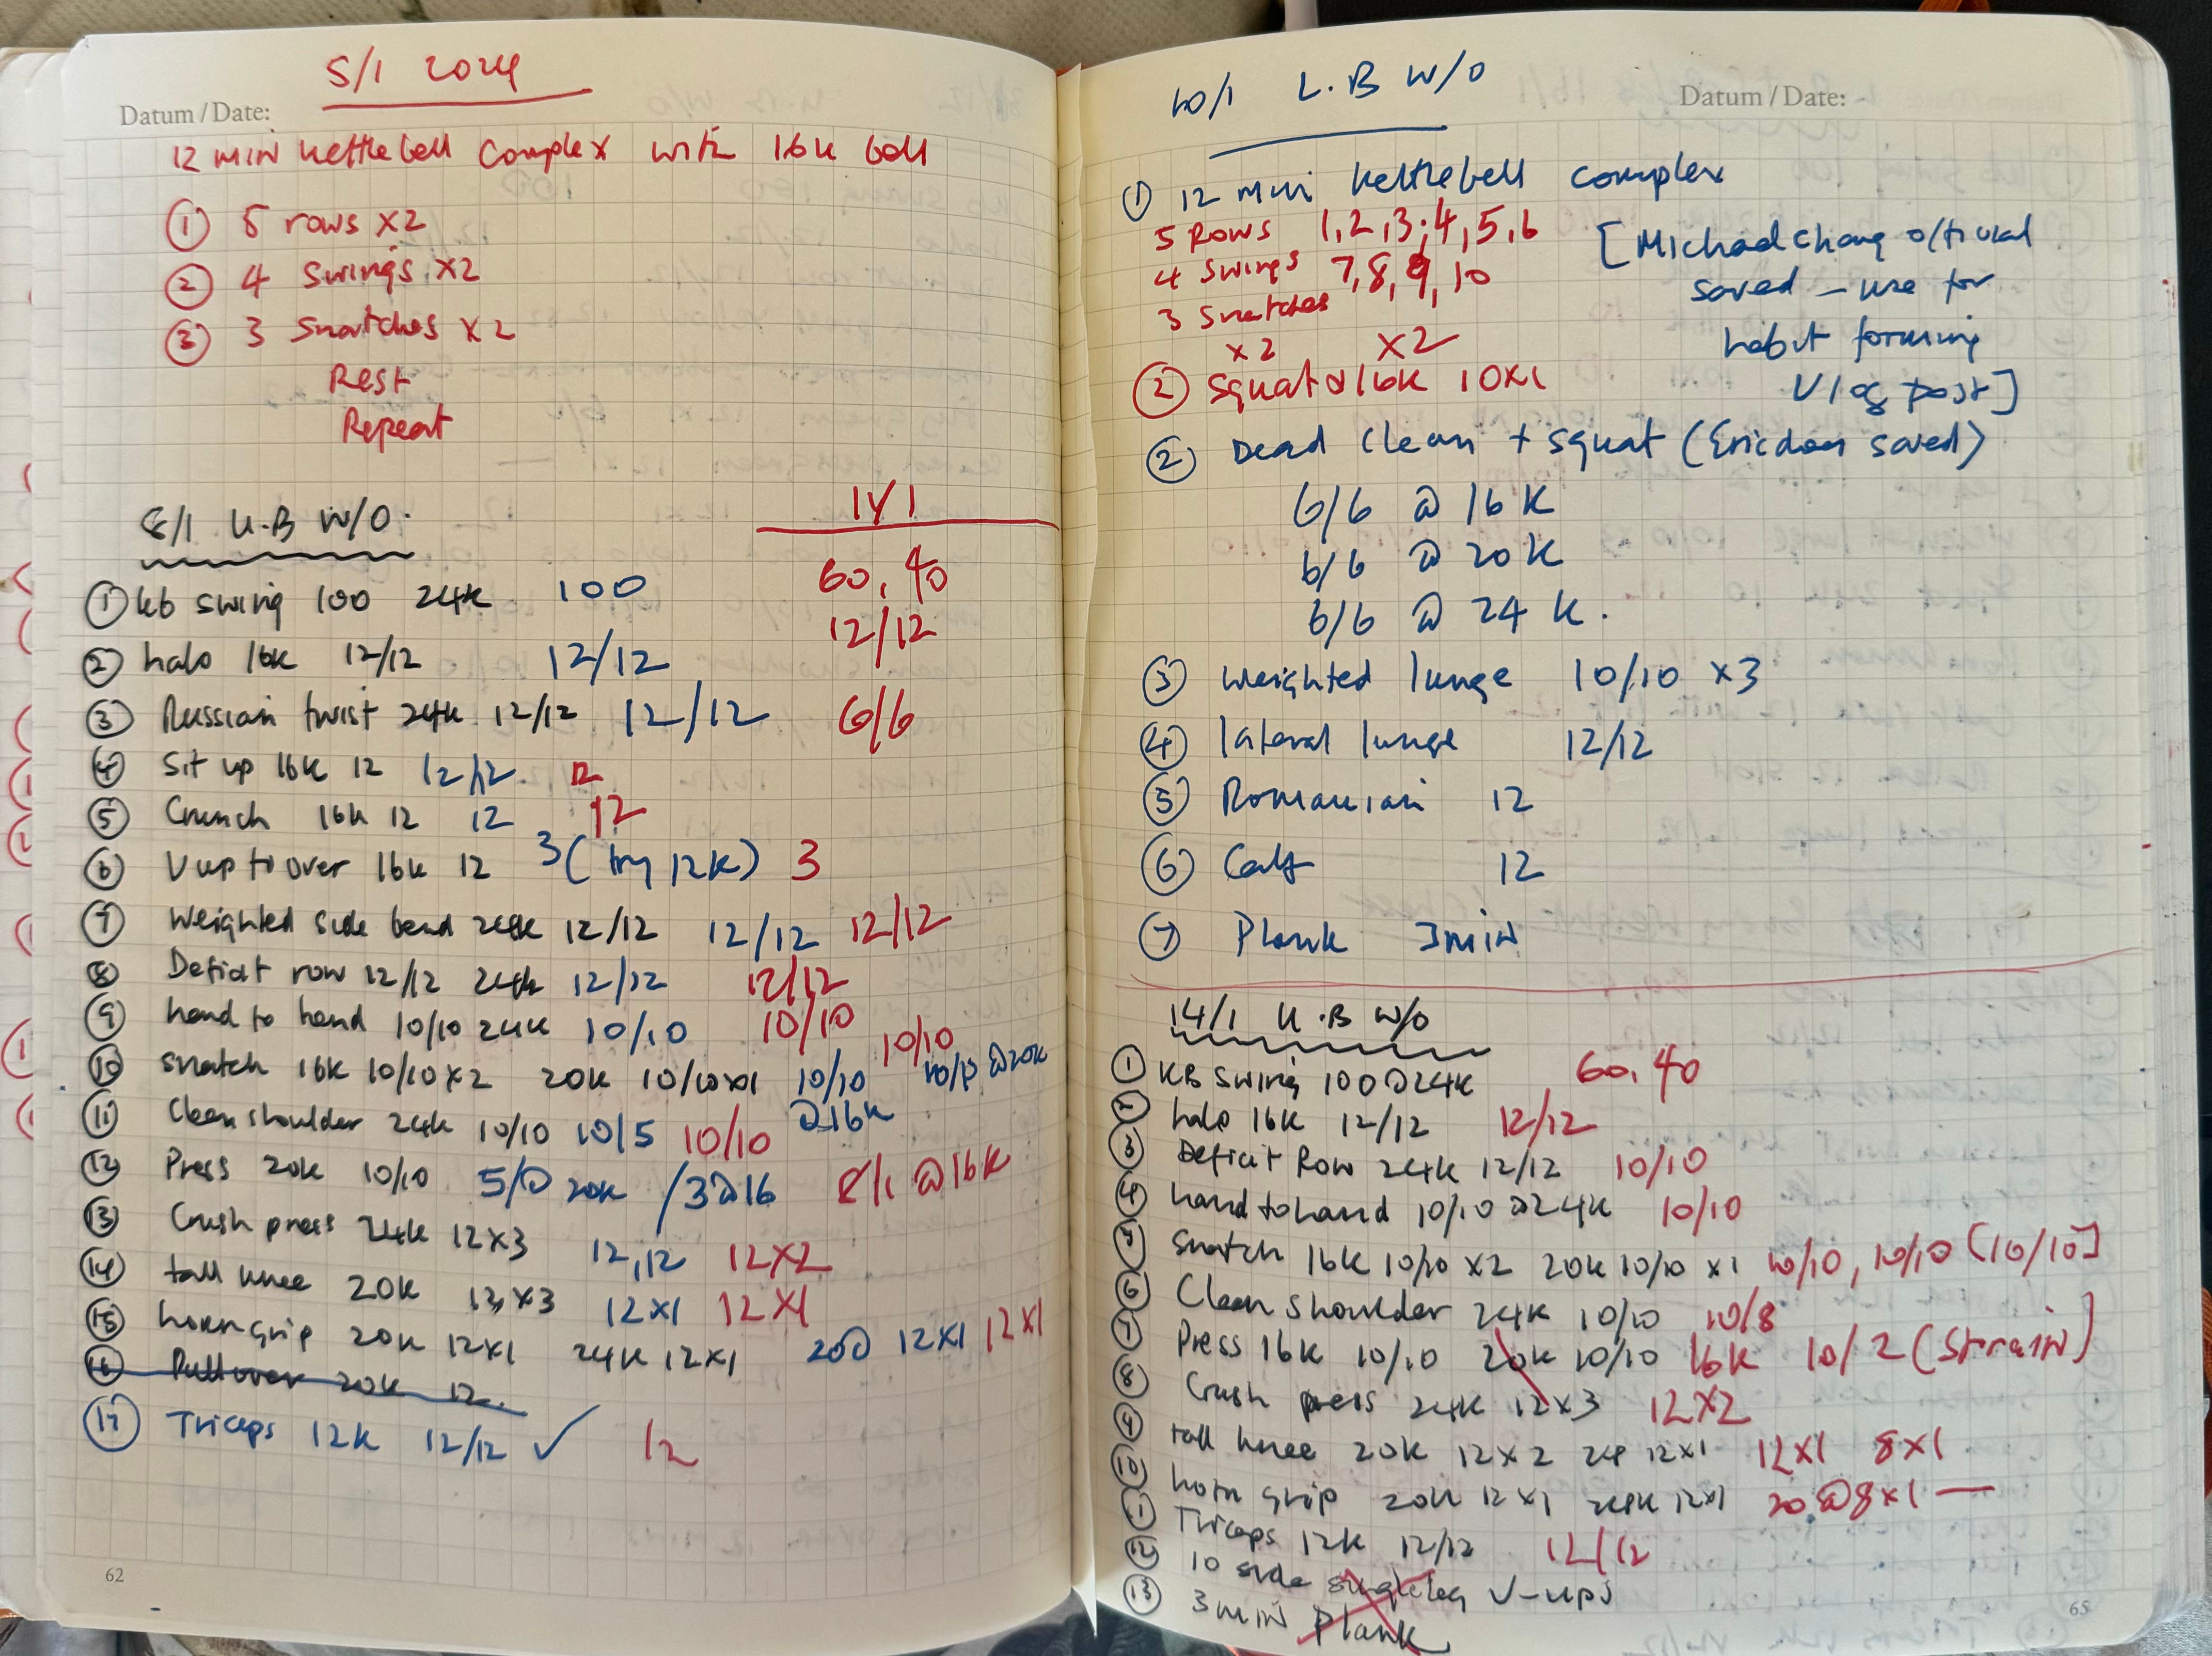 5/1 2024
Datum / Date:
12 MIN Kettlebell Complex with 16K bell
① 5 rows x2
② 4 Swings x2
③ 3 Snatches x2
Rest
Repeat
8/1 U.B W/O.
11/1
① kb swing 100 24K 100 60, 40
② halo 16K 12/12 12/12 12/12
③ Russian twist 24K 12/12 12/12 6/6
④ Sit up 16K 12 12/12 12
⑤ Crunch 16K 12 12 12
⑥ V up to over 16K 12 3 (try 12K) 3
⑦ Weighted side bend 24K 12/12 12/12 12/12
⑧ Deficit row 12/12 24K 12/12 12/12
⑨ hand to hand 10/10 24K 10/10 10/10
⑩ snatch 16K 10/10x2 20K 10/10x1 10/10 @16K 10/10 @20K 10/10
⑪ Clean shoulder 24K 10/10 10/5 10/10
⑫ Press 20K 10/10 5/@ 20K /3@16 8/1 @16K
⑬ Crush press 24K 12x3 12,12 12x2
⑭ tall knee 20K 12x3 12x1 12x1
⑮ horn grip 20K 12x1 24K 12x1 20@ 12x1 12x1
⑯ Pullover 20K 12
⑰ Triceps 12K 12/12 ✓ 12
62
10/1 L.B W/O
Datum / Date:
① 12 min Kettlebell complex
5 Rows 1,2,3,4,5,6
4 swings 7,8,9,10
3 Snatches
x2 x2
[Michael Chang official
saved – use for
habit forming
Vlog post]
② Squat @ 16K 10x1
② Dead Clean + squat ( saved)
6/6 @ 16K
6/6 @ 20K
6/6 @ 24K.
③ Weighted lunge 10/10 x3
④ lateral lunge 12/12
⑤ Romanian 12
⑥ Calf 12
⑦ Plank 3min
14/1 U.B W/O
① KB swing 100@24K 60, 40
② halo 16K 12/12 12/12
③ Deficit Row 24K 12/12 10/10
④ hand to hand 10/10 @24K 10/10
⑤ Snatch 16K 10/10 x2 20K 10/10 x1 10/10, 10/10 [10/10]
⑥ Clean Shoulder 24K 10/10 10/8
⑦ Press 16K 10/10 20K 10/10 16K 10/2 (Strain)
⑧ Crush press 24K 12x3 12x2
⑨ tall knee 20K 12x2 24 12x1 12x1 8x1
⑩ horn grip 20K 12x1 24K 12x1 20@8x1 —
⑪ Triceps 12K 12/12 12/12
⑫ 10 side single leg V-ups
⑬ 3 min plank
65